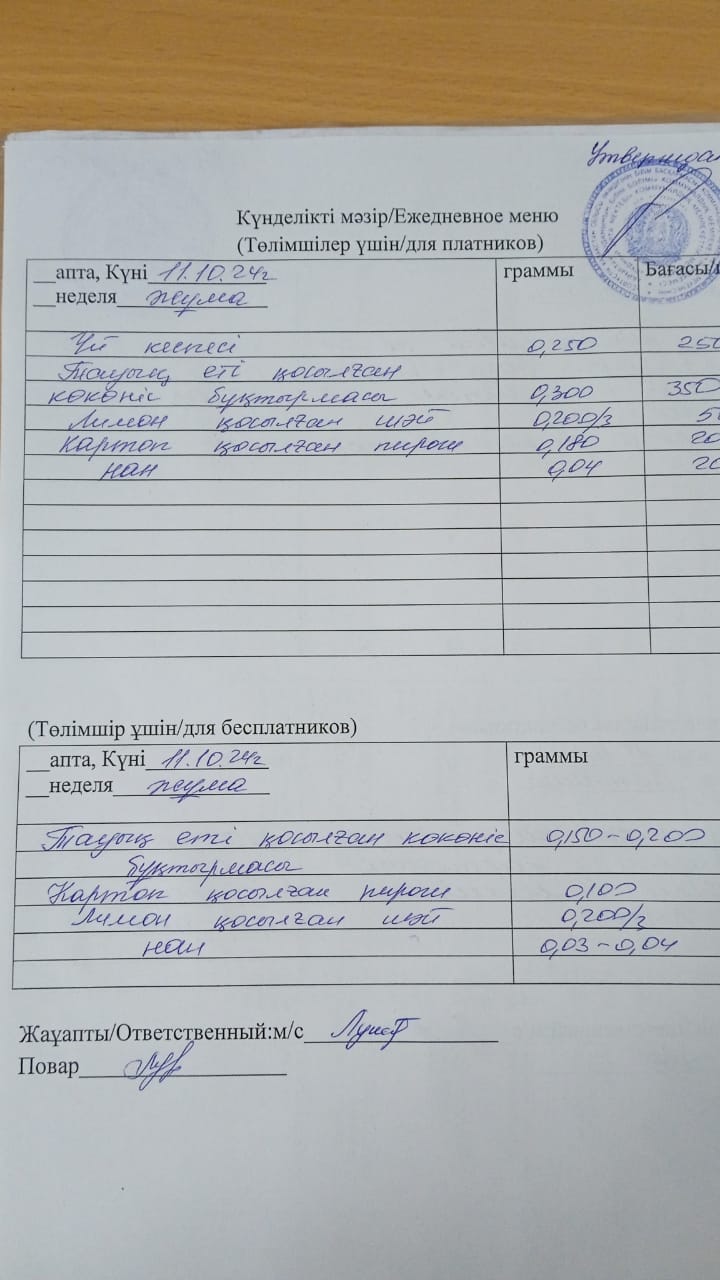 Утвержда
Күнделікті мәзір/Ежедневное меню
(Төлімшілер үшін/для платников)
__апта, Күні 11.10.24г граммы Бағасы/
__неделя жұма
Үй кеспесі 0,250 250
Тауық еті қосылған
көкөніс бұқтырмасы 0,300 350
Лимон қосылған шәй 0,200/3 5
Картоп қосылған пирог 0,180 20
нан 0,04 20
(Төлімшір ұшін/для бесплатников)
__апта, Күні 11.10.24г граммы
__неделя жұма
Тауық еті қосылған көкөніс 0,150-0,200
бұқтырмасы
Картоп қосылған пирог 0,100
Лимон қосылған шәй 0,200/3
нан 0,03-0,04
Жаұапты/Ответственный:м/с
Повар